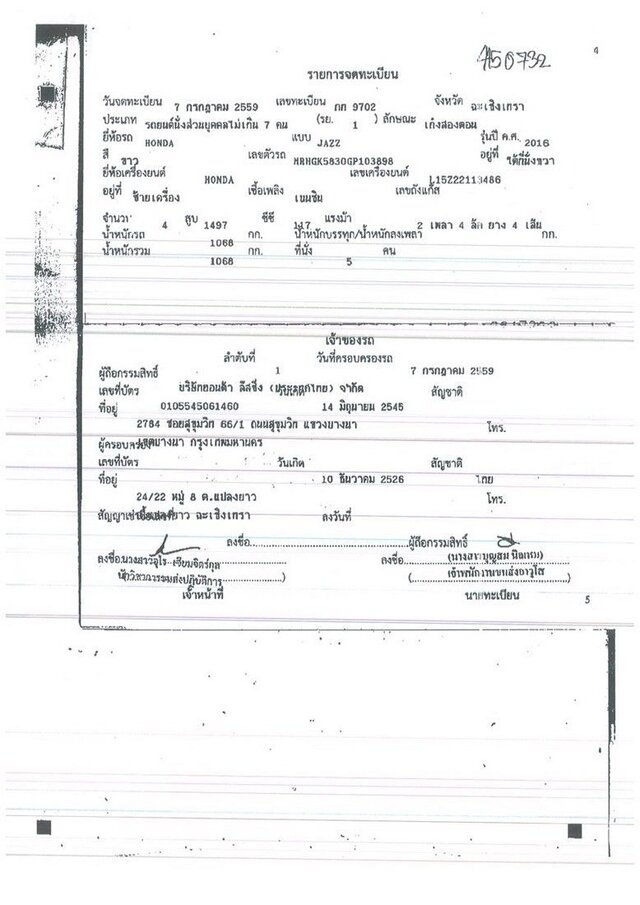 450732
รายการจดทะเบียน
วันจดทะเบียน 7 กรกฎาคม 2559 เลขทะเบียน กก 9702 จังหวัด ฉะเชิงเทรา
ประเภท รถยนต์นั่งส่วนบุคคลไม่เกิน 7 คน (รย. 1 ) ลักษณะ เก๋งสองตอน
ยี่ห้อรถ HONDA แบบ JAZZ รุ่นปี ค.ศ. 2016
สี ขาว เลขตัวรถ MRHGK5830GP103898 อยู่ที่ ใต้ที่นั่งขวา
ยี่ห้อเครื่องยนต์ HONDA เลขเครื่องยนต์ L15Z22113486
อยู่ที่ ซ้ายเครื่อง เชื้อเพลิง เบนซิน เลขถังแก๊ส
จำนวน 4 สูบ 1497 ซีซี 117 แรงม้า 2 เพลา 4 ล้อ ยาง 4 เส้น
น้ำหนักรถ 1068 กก. น้ำหนักบรรทุก/น้ำหนักลงเพลา กก.
น้ำหนักรวม 1068 กก. ที่นั่ง 5 คน
เจ้าของรถ
ลำดับที่ 1 วันที่ครอบครองรถ 7 กรกฎาคม 2559
ผู้ถือกรรมสิทธิ์ บริษัทฮอนด้า ลีสซิ่ง (ประเทศไทย) จำกัด
เลขที่บัตร 0105545061460 วันเกิด 14 มิถุนายน 2545 สัญชาติ
ที่อยู่ 2784 ซอยสุขุมวิท 66/1 ถนนสุขุมวิท แขวงบางนา โทร.
เขตบางนา กรุงเทพมหานคร
ผู้ครอบครอง
เลขที่บัตร วันเกิด 10 ธันวาคม 2526 สัญชาติ ไทย
ที่อยู่ 24/22 หมู่ 8 ต.แปลงยาว โทร.
ฉะเชิงเทรา
ลงวันที่
ลงชื่อ ผู้ถือกรรมสิทธิ์
ลงชื่อ ลงชื่อ
เจ้าหน้าที่ นายทะเบียน
5